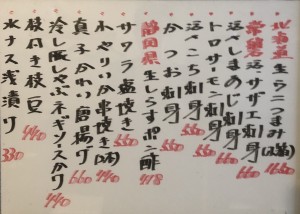 北海道 生うにつまみ(2舟) 1650
常磐 活サザエ刺身 660
活〆しまあじ刺身 660
トロサーモン刺身 550
活〆こち刺身 660
かつお刺身 550
静岡県 生しらすポン酢 418
サワラ塩焼き 660
赤やりいか串焼き(2本)
真子がれい唐揚げ 660
冷し豚しゃぶネギソースがけ 440
枝付き枝豆 440
水ナス浅漬け 330